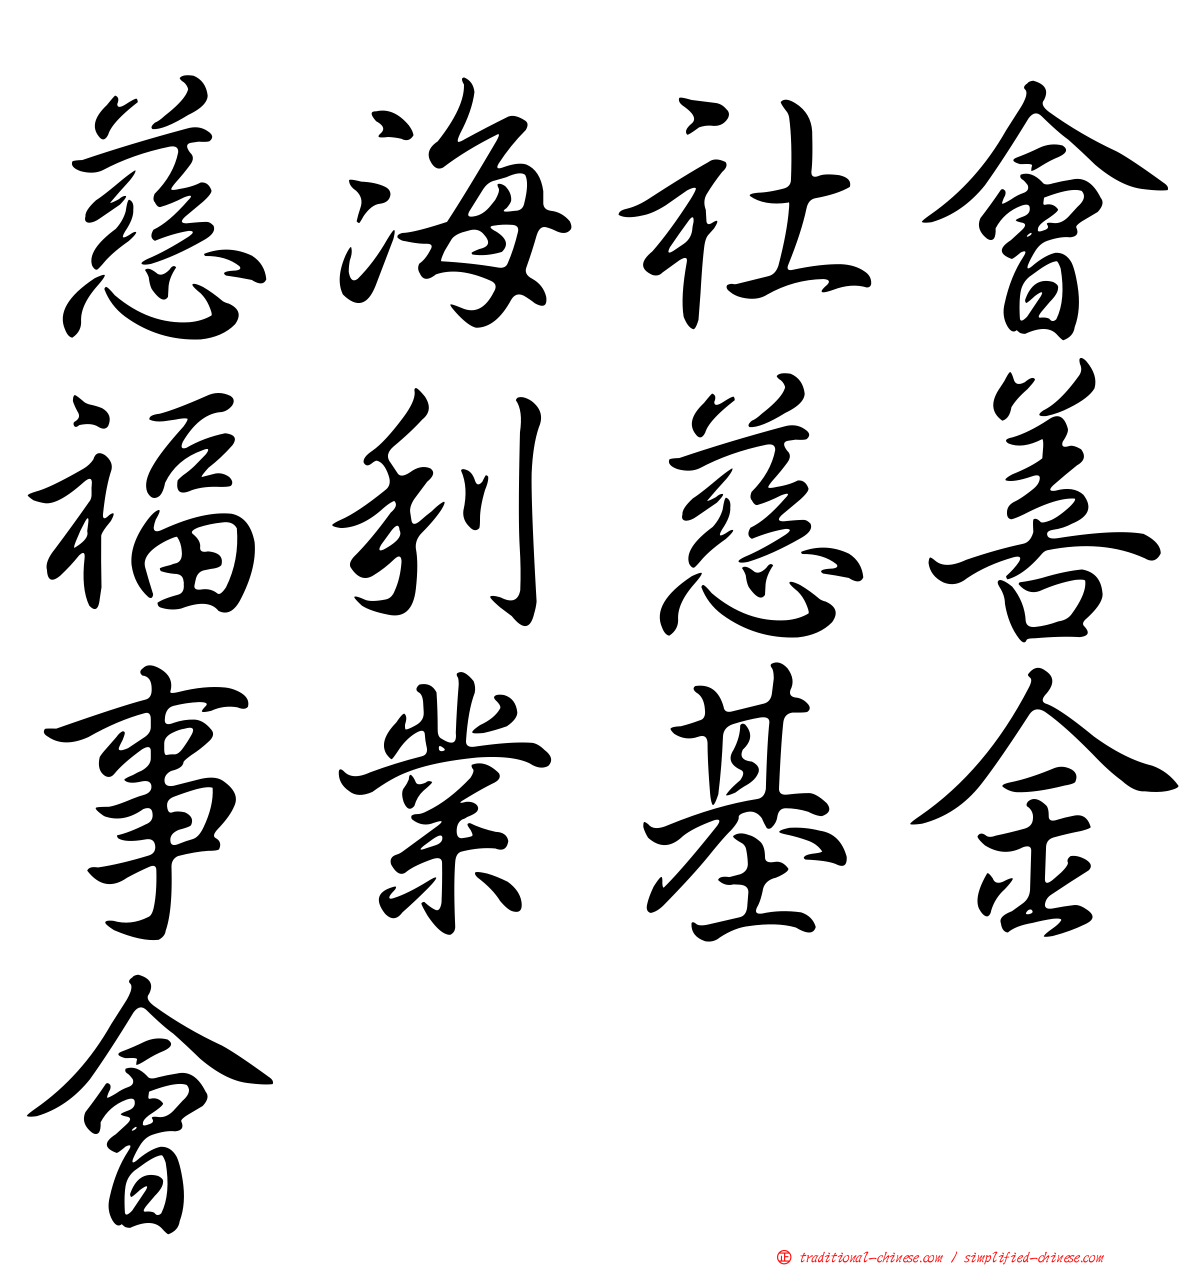 慈海社會
福利慈善
事業基金
會
㊣ traditional-chinese.com / simplified-chinese.com